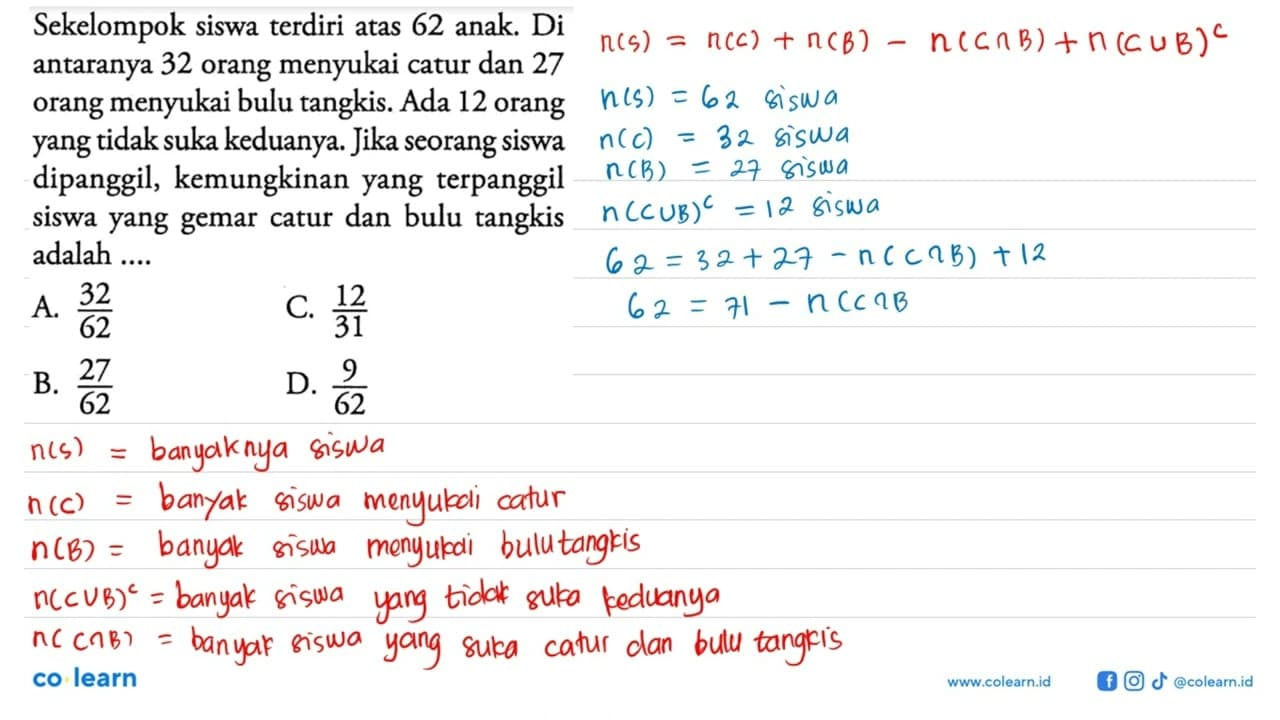 Sekelompok siswa terdiri atas 62 anak. Di
antaranya 32 orang menyukai catur dan 27
orang menyukai bulu tangkis. Ada 12 orang
yang tidak suka keduanya. Jika seorang siswa
dipanggil, kemungkinan yang terpanggil
siswa yang gemar catur dan bulu tangkis
adalah ....
A. 32/62
C. 12/31
B. 27/62
D. 9/62
n(S) = n(C) + n(B) - n(C∩B) + n(C∪B)ᶜ
n(S) = 62 siswa
n(C) = 32 siswa
n(B) = 27 siswa
n(C∪B)ᶜ = 12 siswa
62 = 32 + 27 - n(C∩B) + 12
62 = 71 - n(C∩B
n(S) = banyaknya siswa
n(C) = banyak siswa menyukai catur
n(B) = banyak siswa menyukai bulutangkis
n(C∪B)ᶜ = banyak siswa yang tidak suka keduanya
n(C∩B) = banyak siswa yang suka catur dan bulu tangkis
co learn
www.colearn.id @colearn.id